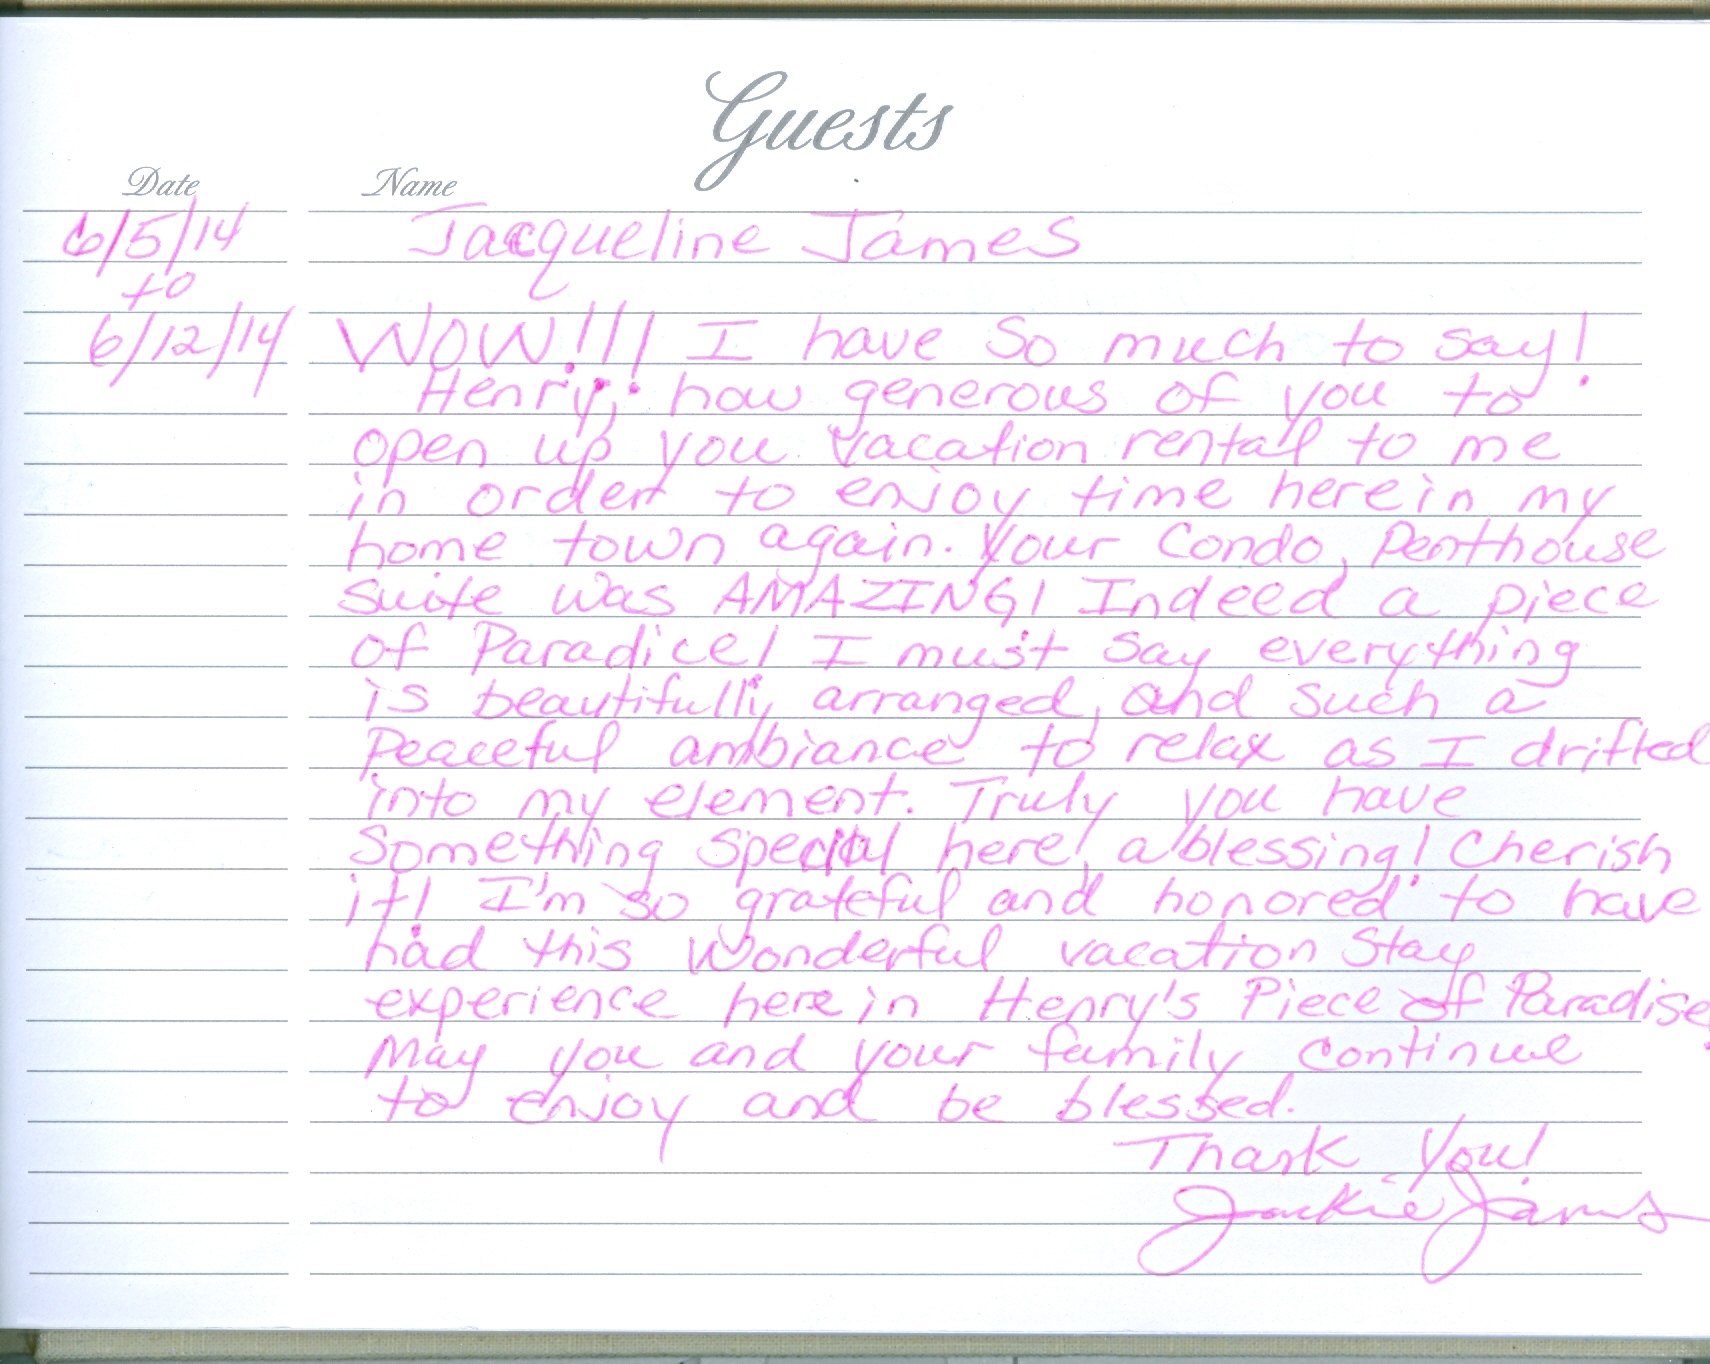 Guests
Date Name
6/5/14 Jacqueline James
to
6/12/14 WOW!!! I have so much to say!
Henry, how generous of you to
open up you vacation rental to me
in order to enjoy time here in my
home town again. Your Condo, Penthouse
Suite was AMAZING! Indeed a piece
of Paradice! I must say everything
is beautifully arranged, and such a
Peaceful ambiance to relax as I drifted
into my element. Truly you have
Something special here, a blessing! Cherish
it! I'm so grateful and honored to have
had this wonderful vacation Stay
experience here in Henry's Piece of Paradise.
May you and your family continue
to enjoy and be blessed.
Thank You!
Jackie James